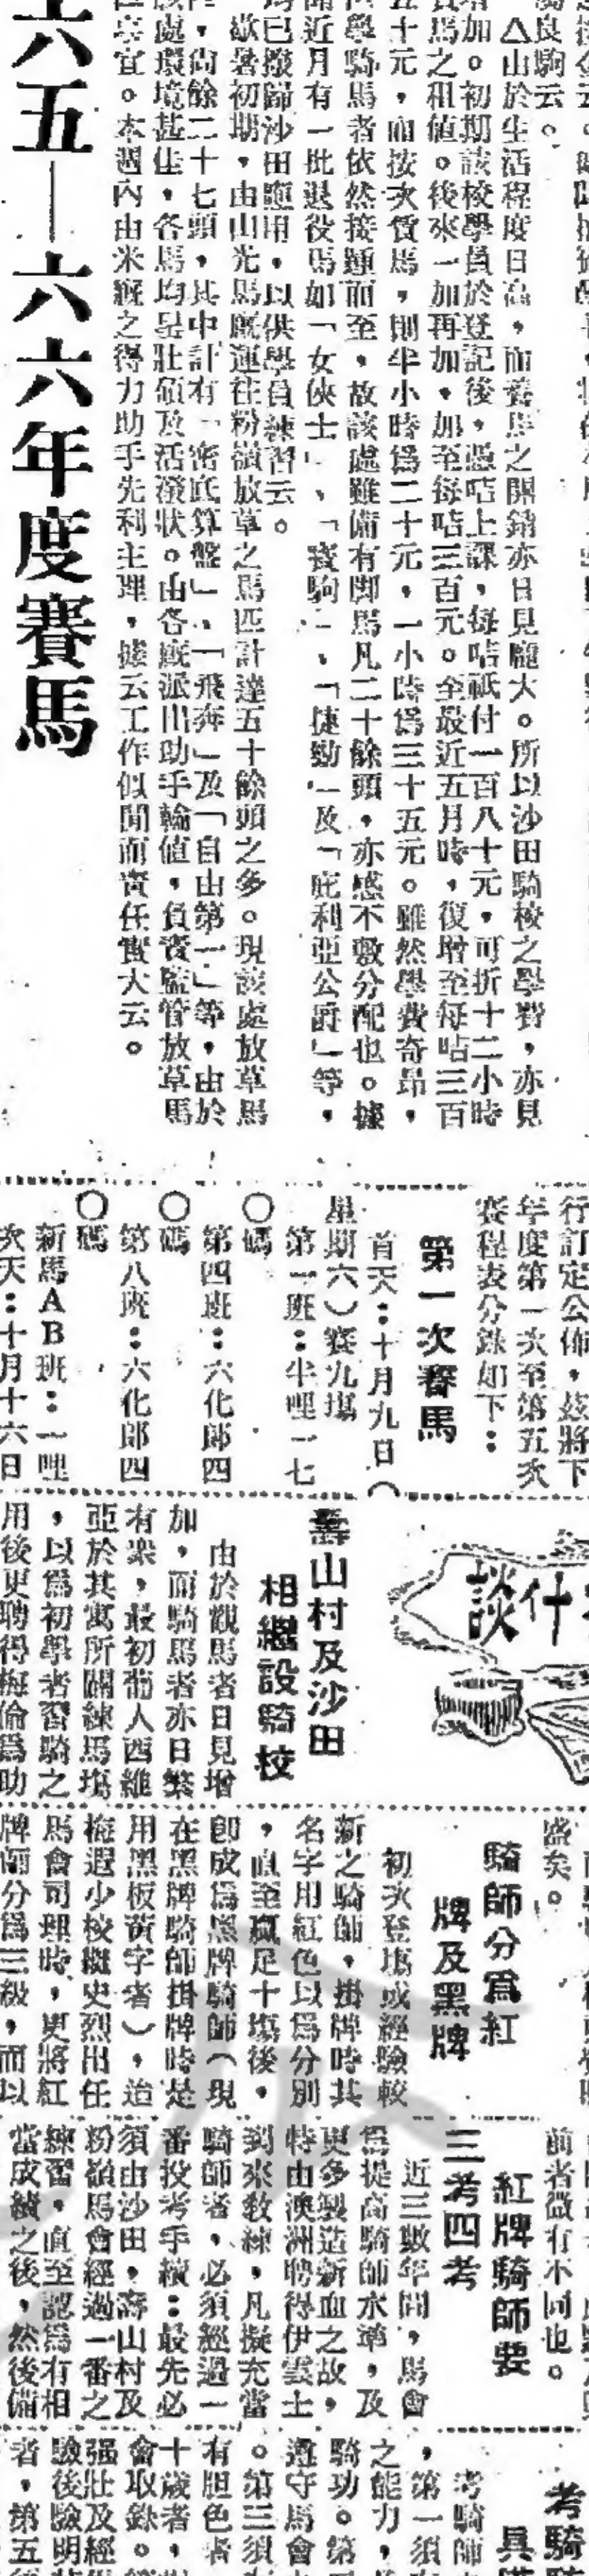 駿良駒云。
△由於生活程度日高，而養馬之開銷亦日見龐大。所以沙田騎校之學費，亦見
增加。初期該校學員於登記後，憑咭上課，每咭祇付一百八十元，可折十二小時
賃馬之租值。後來一加再加，加至每咭三百元。至最近五月時，復增至每咭三百
五十元，而按次賃馬，則半小時為二十元，一小時為三十五元。雖然學費奇昂，
但學騎馬者依然接踵而至，故該處雖備有脚馬凡二十餘頭，亦感不敷分配也。據
聞近月有一批退役馬如「女俠士」、「寶駒」、「捷勁」及「庇利亞公爵」等，
均已撥歸沙田應用，以供學員練習云。
歇暑初期，由山光馬廐運往粉嶺放草之馬匹計達五十餘頭之多。現該處放草馬
，尙餘二十七頭，其中計有「密底算盤」、「飛奔」及「自由第一」等，由於
該處環境甚佳，各馬均呈壯碩及活潑狀。由各廐派出助手輪值，負責監管放草馬
事宜。本週內由米廐之得力助手先利主理，據云工作似閒而責任實大云。
六五—六六年度賽馬
行訂定公佈，茲將下
年度第一次至第五次
賽程表分錄如下：
第一次賽馬
首天：十月九日（
星期六）賽九塲
第一班：半哩一七
〇碼
第四班：六化郎四
〇碼
第八班：六化郎四
〇碼
新馬AB班：一哩
次天：十月十六日
什談
壽山村及沙田
相繼設騎校
由於觀馬者日見增
加，而騎馬者亦日繁
有衆，最初葡人西維
亞於其寓所闢練馬塲
，以為初學者習騎之
用後更聘得梅倫為助
盛矣。
騎師分為紅
牌及黑牌
初次登塲或經驗較
新之騎師，掛牌時其
名字用紅色以為分別
，直至贏足十塲後，
卽成為黑牌騎師（現
在黑牌騎師掛牌時是
用黑板黃字者），迨
梳遐少校繼史烈出任
馬會司理時，更將紅
牌師分為三級，而以
前者微有不同也。
紅牌騎師要
三考四考
近三數年間，馬會
為提高騎師水準，及
更多製造新血之故，
特由澳洲聘得伊雲士
到來敎練，凡擬充當
騎師者，必須經過一
番投考手續：最先必
須由沙田，壽山村及
粉嶺馬會經過一番之
練習，直至認為有相
當成績之後，然後備
考騎
具
考騎師
，第一須
之能力，
騎功。第
遵守馬會
。第三須
有胆色者
十歲者，
會取錄。
强壯及經
驗後驗明
者，第五